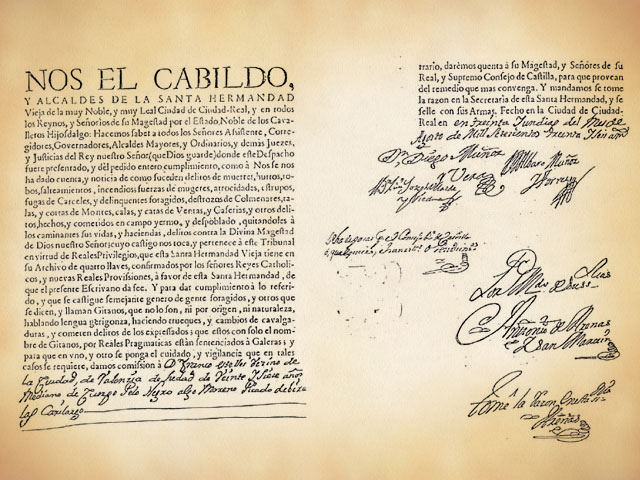 NOS EL CABILDO,
Y ALCALDES DE LA SANTA HERMANDAD
Vieja de la muy Noble, y muy Leal Ciudad de Ciudad-Real, y en todos
los Reynos, y Señorios de su Magestad por el Estado Noble de los Cava-
lleros Hijosdalgo: Hacemos saber a todos los Señores Asistente, Corre-
gidores, Governadores, Alcaldes Mayores, y Ordinarios, y demàs Juezes,
y Justicias del Rey nuestro Señor (que Dios guarde) donde este Despacho
fuere presentado, y del pedido entero cumplimiento, como à Nos se nos
ha dado cuenta, y noticia de como suceden delitos de muertes, hurtos, ro-
bos, salteamientos, incendios, fuerzas de mugeres, atrocidades, estrupos,
fugas de Carceles, y delinquentes foragidos, destrozos de Colmenares, ta-
las, y cortas de Montes, calas, y catas de Ventas, y Caserias, y otros deli-
tos, hechos, y cometidos en campo yermo, y despoblado, quitandoles à
los caminantes sus vidas, y haciendas, delitos contra la Divina Magestad
de Dios nuestro Señor; cuyo castigo nos toca, y pertenece à este Tribunal
en virtud de Reales Privilegios, que esta Santa Hermandad Vieja tiene en
su Archivo de quatro llaves, confirmados por los señores Reyes Catholi-
cos, y nuevas Reales Provisiones, à favor de esta Santa Hermandad, de
que el presente Escrivano da fee. Y para dar cumplimiento à lo referi-
do, y que se castigue semejante genero de gente foragidos, y otros que
se dicen, y llaman Gitanos, que no lo son, ni por origen, ni naturaleza,
hablando lengua gerigonza, haciendo trueques, y cambios de cavalga-
duras, y cometen delitos de los expressados; que estos con solo el nom-
bre de Gitanos, por Reales Pragmaticas estàn sentenciados à Galeras; y
para que en uno, y otro se ponga el cuidado, y vigilancia que en tales
casos se requiere, damos comission à D. Vezino de
la Ciudad, de Valenzia de hedad de Veinte y Siete años
Mediano de Cuerpo Pelo Negro algo Moreno

trario, darèmos quenta à su Magestad, y Señores de su
Real, y Supremo Consejo de Castilla, para que provean
del remedio que mas convenga. Y mandamos se tome
la razon en la Secretaria de esta Santa Hermandad, y se
selle con sus Armas. Fecho en la Ciudad de Ciudad-
Real en treinta dias del Mes de
Agosto de Mil Setecientos treinta
Dn. Diego Muñoz
Vera
Muñoz
Por Mdo. de sus
Antonio de Arenas
San Martin
Tomè la Razon
Arenas